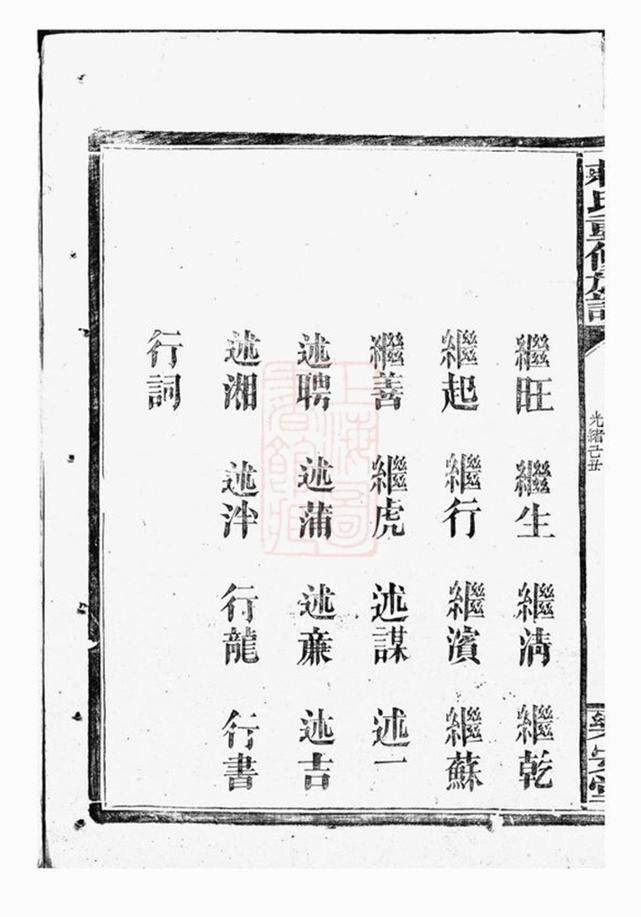 氏重修族譜
光緒己丑
繼旺 繼生 繼清 繼乾
繼起 繼行 繼濱 繼蘇
繼善 繼虎 述謀 述一
述聘 述蒲 述廉 述吉
述湘 述泮 行龍 行書
行詞
上海圖書館藏